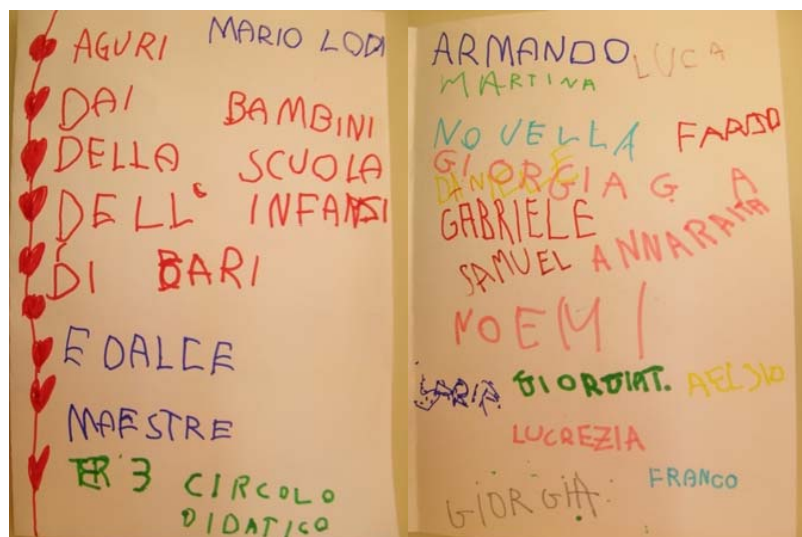 AGURI MARIO LODI
DAI BAMBINI
DELLA SCUOLA
DELL' INFANSI
DI BARI
E DALCE
MAESTRE
TER 3 CIRCOLO
DIDATICO
ARMANDO LUCA
MARTINA
NOVELLA
GIORGIA G A
DANIELE
GABRIELE
SAMUEL ANNARAITA
NOEMI
GIORGIAT. AELSIO
LUCREZIA
FRANCO
GIORGIA